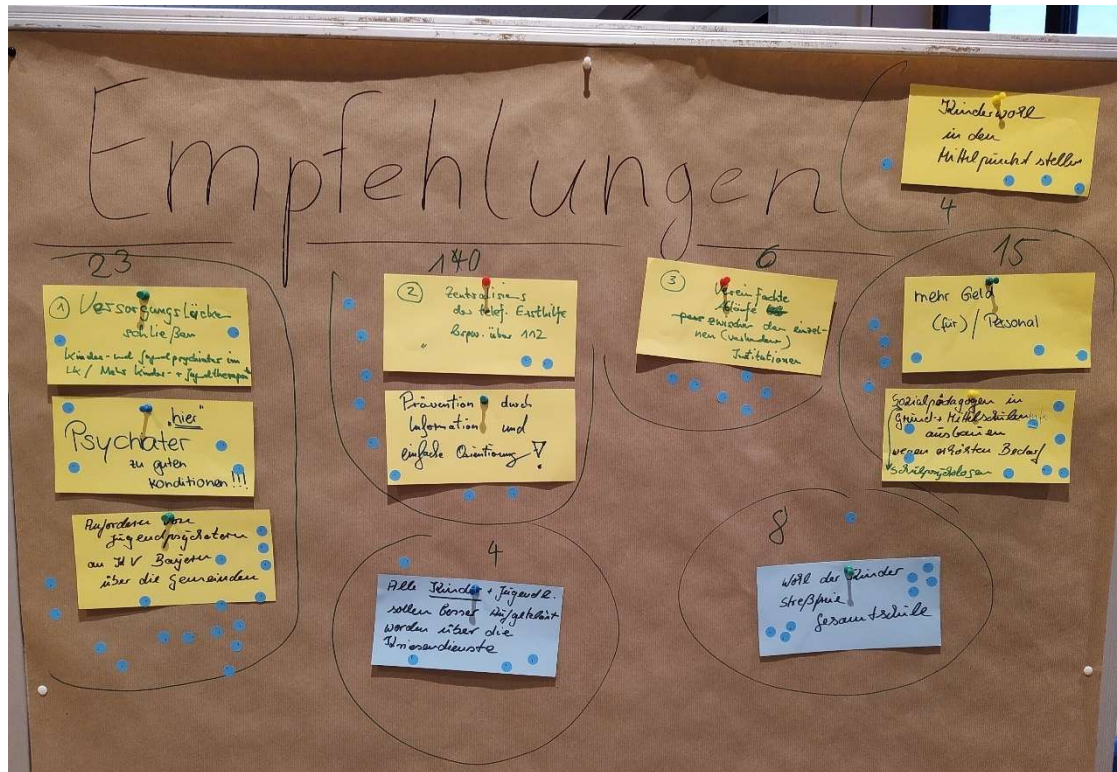 Empfehlungen
Kinderwohl
in den
Mittelpunkt stellen
4
23
① Versorgungslücken
schließen
Kinder- und Jugendpsychiater im
LK / Mehr Kinder- + Jugendtherapeut
"hier"
Psychater
zu guten
Konditionen!!!
Anfordern von
Jugendpsychatern
an KV Bayern
über die Gemeinden
② Zentralisierg
der telef. Ersthilfe
bspw. über 112
Prävention durch
Information und
einfache Orientierung !
4
Alle Kinder + Jugendl.
sollen besser aufgeklärt
werden über die
Krisendienste
6
③ Vereinfachte
Abläufe
zwischen den einzel-
nen (verbunden)
Institutionen
15
mehr Geld
(für) / Personal
Sozialpädagogen in
Grund- + Mittelschulen
ausbauen
wegen erhöhten Bedarf
Schulpsychologen
8
Wohl der Kinder
streßfreie
Gesamtschule